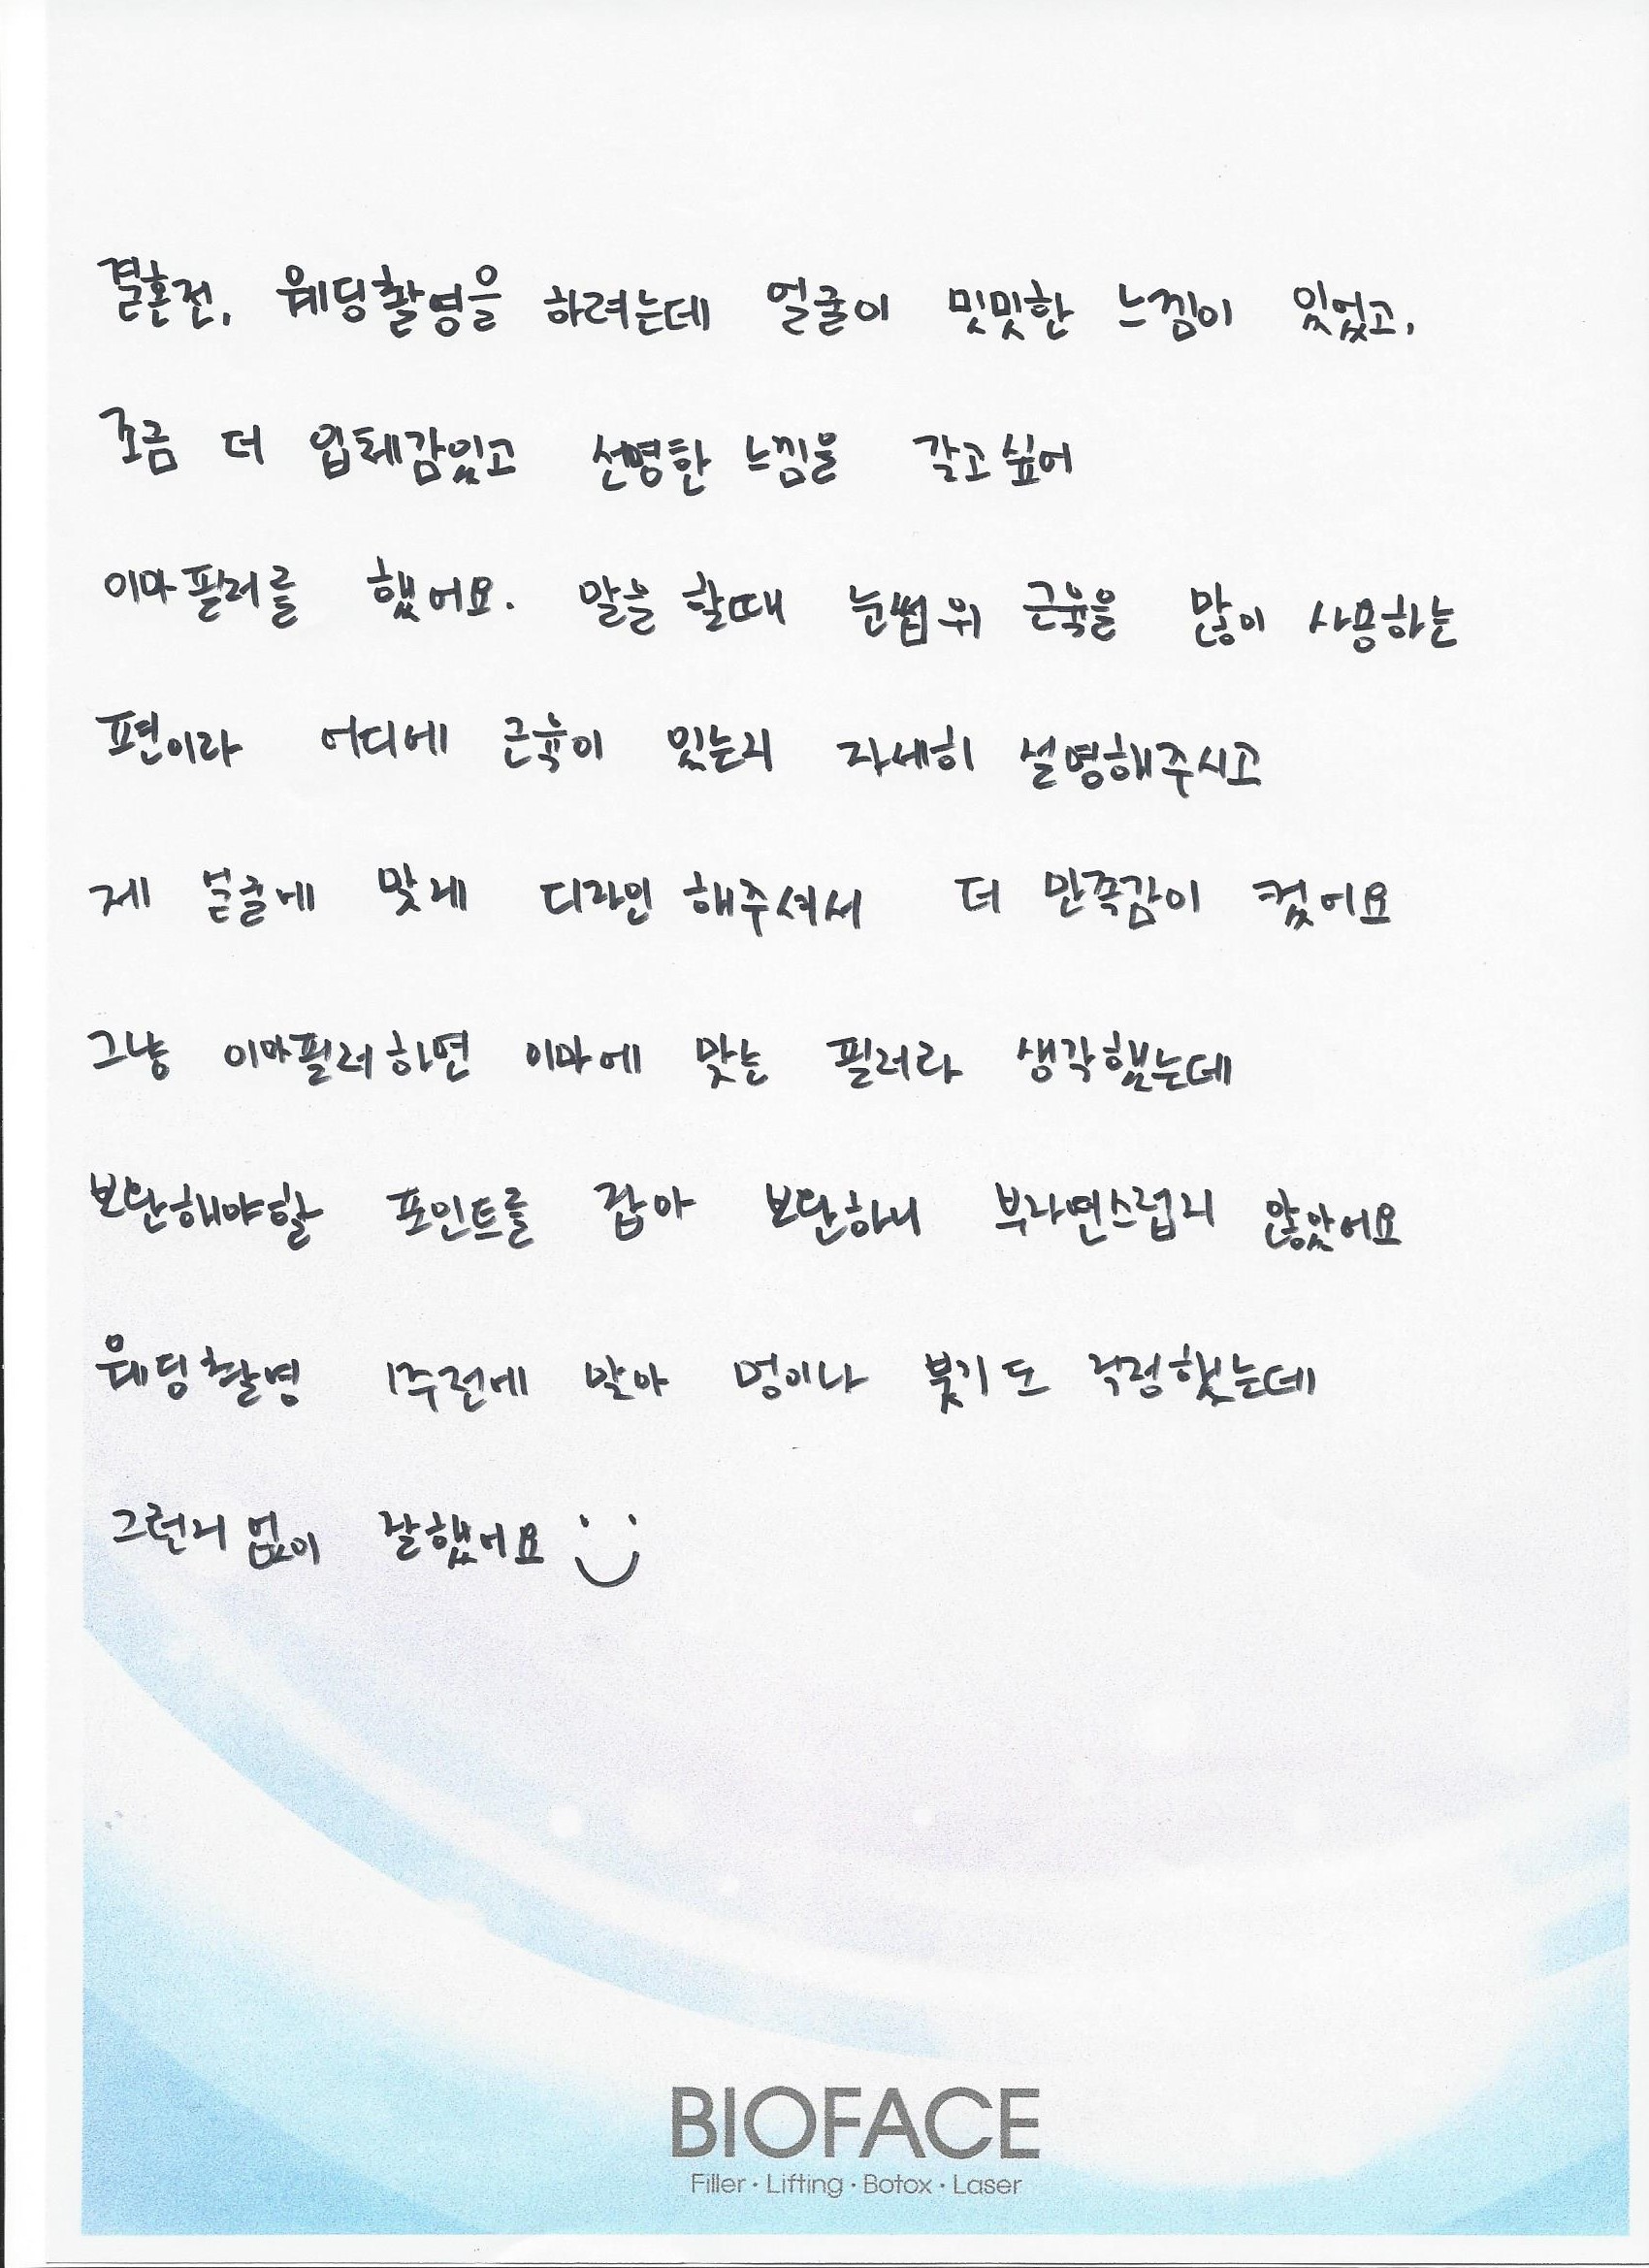 결혼전, 웨딩촬영을 하려는데 얼굴이 밋밋한 느낌이 있었고,
조금 더 입체감있고 선명한 느낌을 갖고싶어
이마필러를 했어요. 말을 할때 눈썹위 근육을 많이 사용하는
편이라 어디에 근육이 있는지 자세히 설명해주시고
제 얼굴에 맞게 디자인 해주셔서 더 만족감이 컸어요
그냥 이마필러하면 이마에 맞는 필러라 생각했는데
보완해야할 포인트를 잡아 보완하니 부자연스럽지 않았어요
웨딩촬영 1주전에 맞아 멍이나 붓기도 걱정했는데
그런지 없이 잘했어요 :)
BIOFACE
Filler · Lifting · Botox · Laser